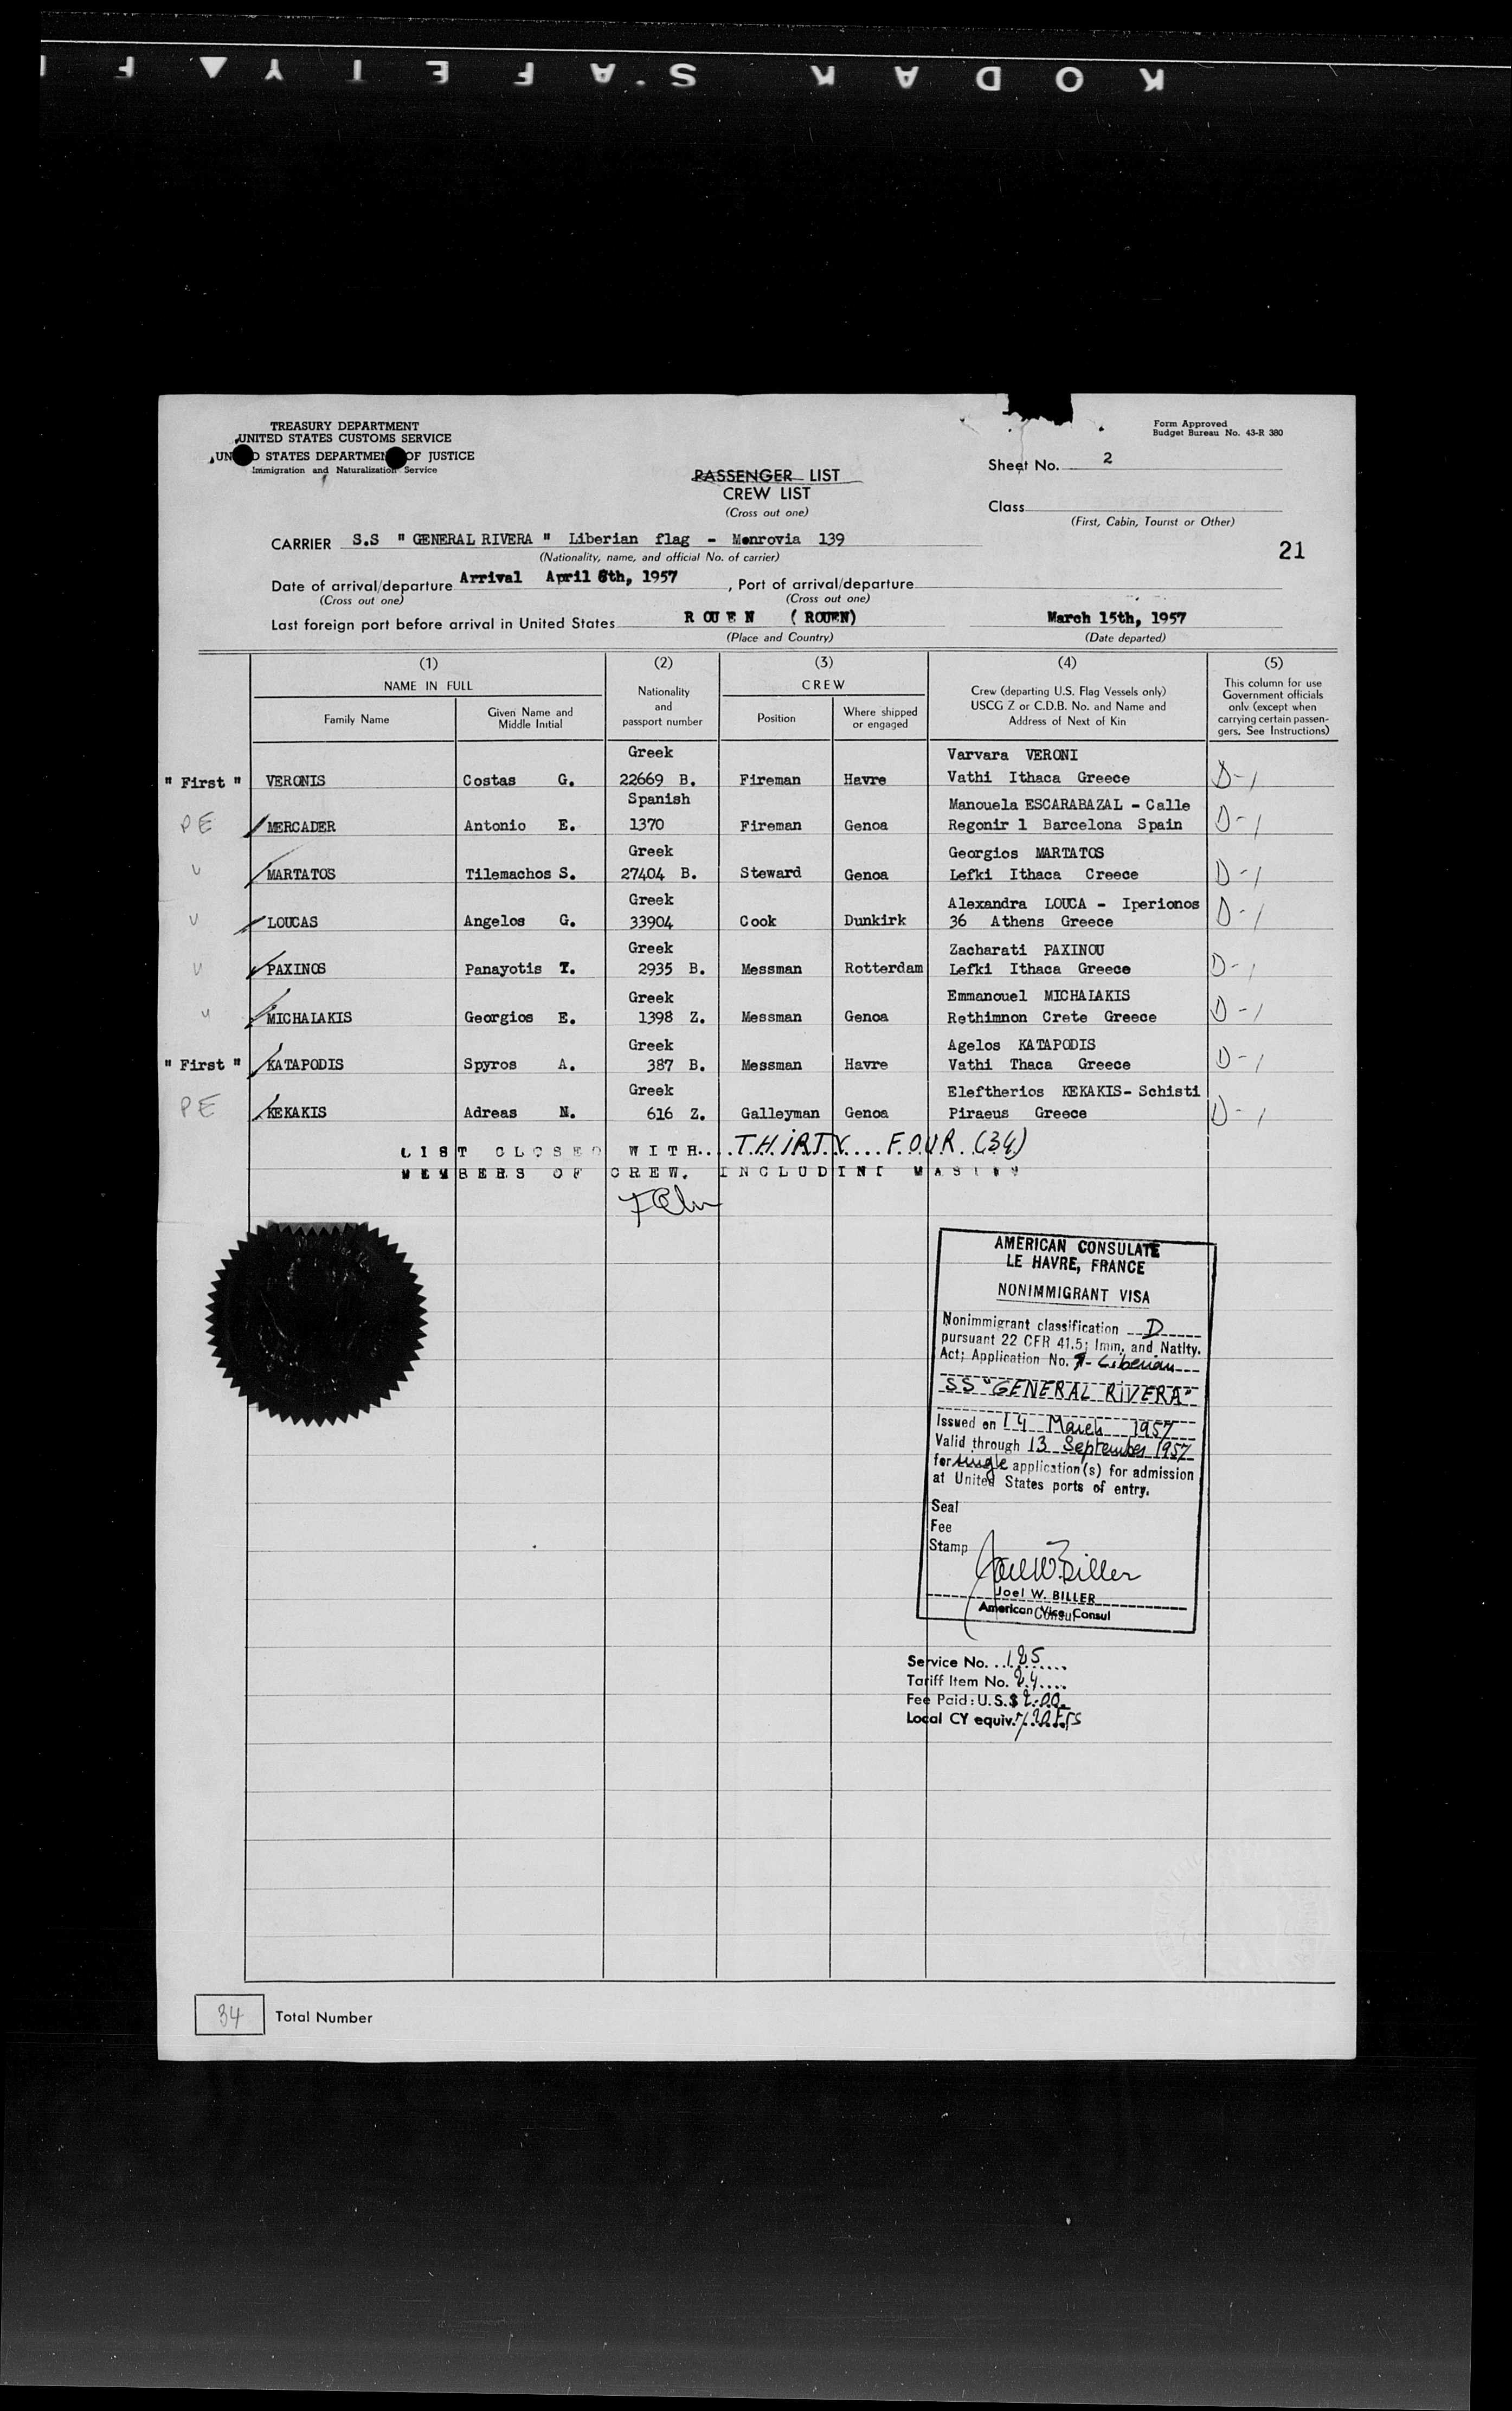 KODAK SAFETY ▲ F
TREASURY DEPARTMENT
UNITED STATES CUSTOMS SERVICE
UN D STATES DEPARTMEN OF JUSTICE
Immigration and Naturalization Service
Form Approved
Budget Bureau No. 43-R 380
PASSENGER LIST
CREW LIST
(Cross out one)
Sheet No. 2
Class
(First, Cabin, Tourist or Other)
21
CARRIER S.S " GENERAL RIVERA " Liberian flag - Monrovia 139
(Nationality, name, and official No. of carrier)
Date of arrival/departure Arrival April 6th, 1957 , Port of arrival/departure
(Cross out one) (Cross out one)
Last foreign port before arrival in United States R OU E N ( ROUEN) March 15th, 1957
(Place and Country) (Date departed)
(1) (2) (3) (4) (5)
NAME IN FULL
Family Name
Given Name and
Middle Initial
Nationality
and
passport number
CREW
Position
Where shipped
or engaged
Crew (departing U.S. Flag Vessels only)
USCG Z or C.D.B. No. and Name and
Address of Next of Kin
This column for use
Government officials
only (except when
carrying certain passen-
gers. See Instructions)
Greek Varvara VERONI
" First " VERONIS Costas G. 22669 B. Fireman Havre Vathi Ithaca Greece D-1
Spanish Manouela ESCARABAZAL - Calle
PE MERCADER Antonio E. 1370 Fireman Genoa Regonir 1 Barcelona Spain D-1
Greek Georgios MARTATOS
MARTATOS Tilemachos S. 27404 B. Steward Genoa Lefki Ithaca Creece D-1
Greek Alexandra LOUCA - Iperionos
LOUCAS Angelos G. 33904 Cook Dunkirk 36 Athens Greece D-1
Greek Zacharati PAXINOU
PAXINOS Panayotis T. 2935 B. Messman Rotterdam Lefki Ithaca Greece D-1
Greek Emmanouel MICHALAKIS
MICHALAKIS Georgios E. 1398 Z. Messman Genoa Rethimnon Crete Greece D-1
Greek Agelos KATAPODIS
" First " KATAPODIS Spyros A. 387 B. Messman Havre Vathi Thaca Greece D-1
Greek Eleftherios KEKAKIS- Schisti
PE KEKAKIS Adreas N. 616 Z. Galleyman Genoa Piraeus Greece D-1
LIST CLOSED WITH.. THIRTY FOUR (34)
MEMBERS OF CREW. INCLUDING MASTER
AMERICAN CONSULATE
LE HAVRE, FRANCE
NONIMMIGRANT VISA
Nonimmigrant classification D
pursuant 22 CFR 41.5; Imm. and Natlty.
Act; Application No. Liberian
SS "GENERAL RIVERA"
Issued on 14 March 1957
Valid through 13 September 1957
for single application(s) for admission
at United States ports of entry.
Seal
Fee
Stamp
Joel W. Biller
Joel W. BILLER
American Vice Consul
Service No. 185
Tariff Item No. 24
Fee Paid: U.S.$ 2.00
Local CY equiv.
34 Total Number